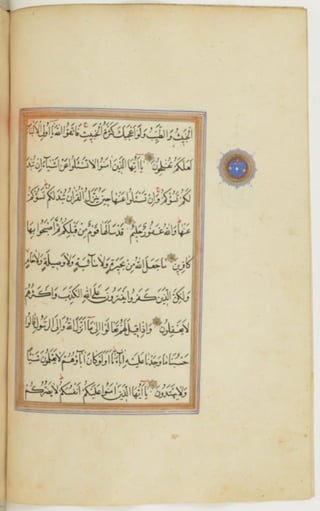 الخبيث والطيب ولو اعجبك كثرة الخبيث فاتقوا الله يا اولي الالباب
لعلكم تفلحون يا ايها الذين امنوا لا تسئلوا عن اشياء ان تبد
لكم تسؤكم وان تسئلوا عنها حين ينزل القران تبد لكم
عنها والله غفور حليم قد سالها قوم من قبلكم ثم اصبحوا بها
كافرين ما جعل الله من بحيرة ولا سائبة ولا وصيلة ولا حام
ولكن الذين كفروا يفترون على الله الكذب واكثرهم
لا يعقلون واذا قيل لهم تعالوا الى ما انزل الله والى الرسول قالوا
حسبنا ما وجدنا عليه اباءنا اولو كان اباؤهم لا يعلمون شيئا
ولا يهتدون يا ايها الذين امنوا عليكم انفسكم لا يضركم